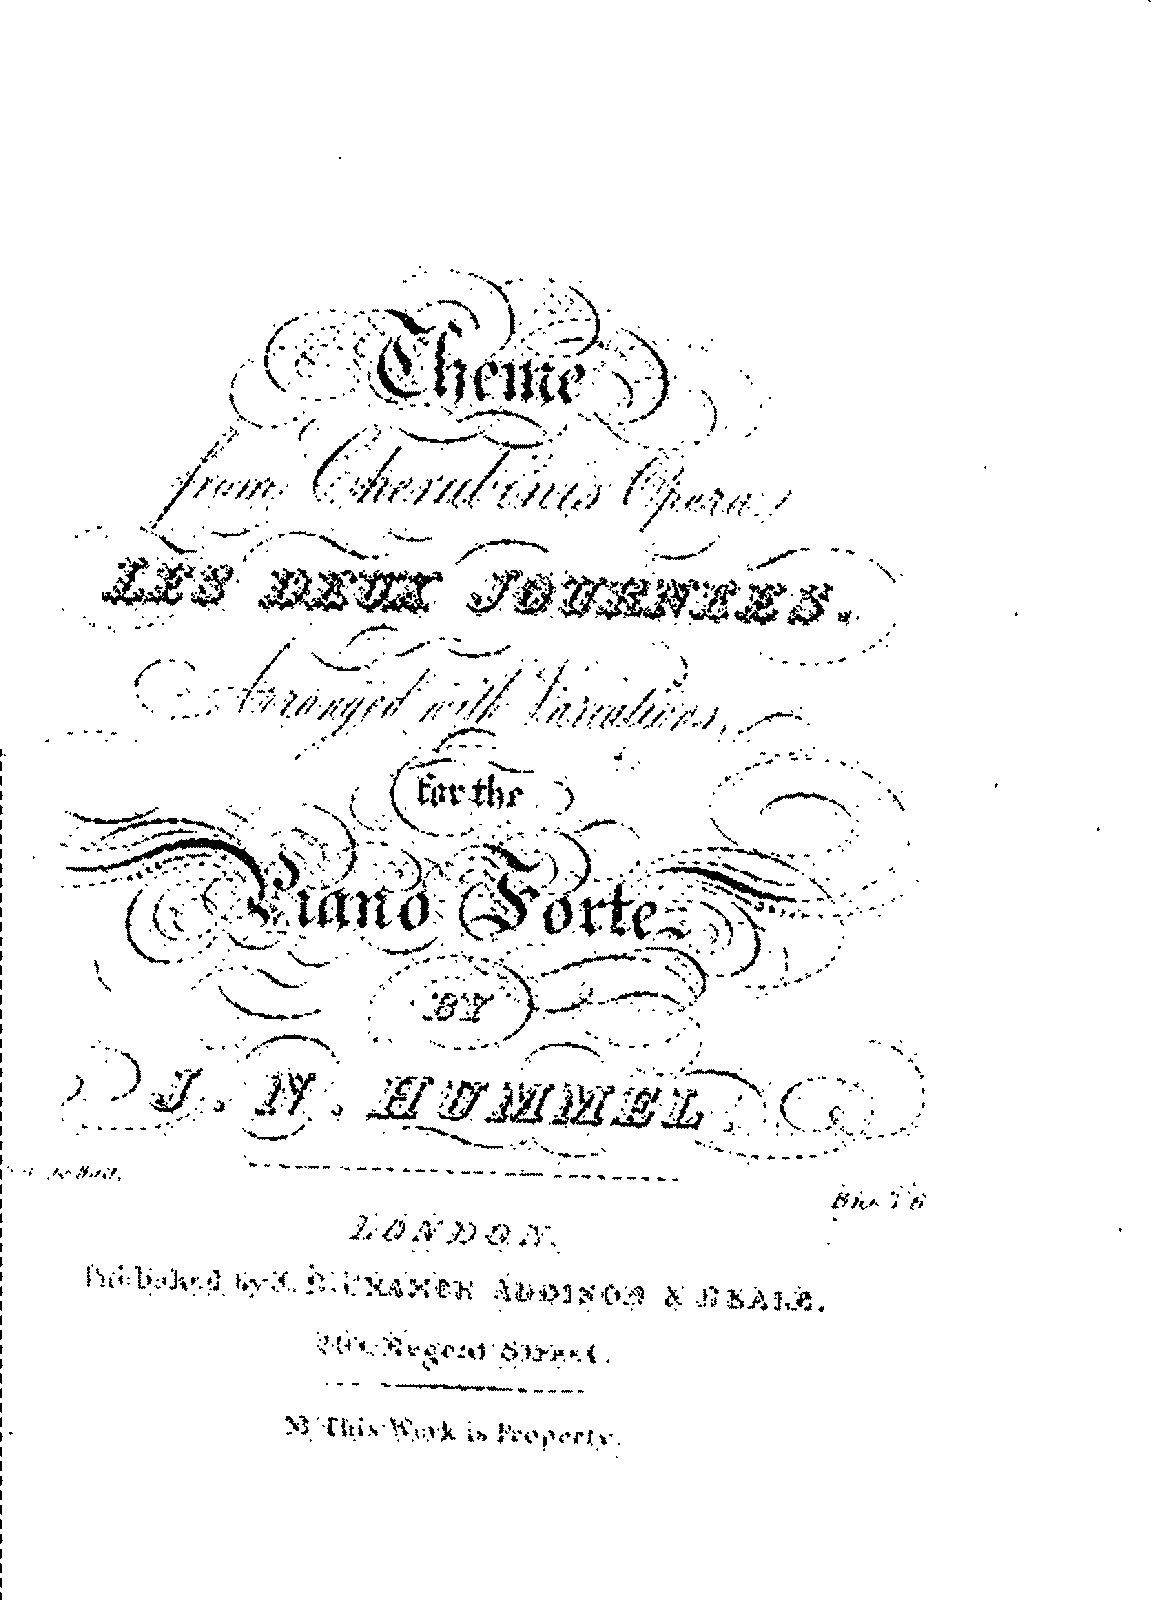 Theme
from Cherubini's Opera
LES DEUX JOURNEES.
Arranged with Variations,
for the
Piano Forte
BY
J. N. HUMMEL.
LONDON.
Published by J. B. CRAMER ADDISON & BEALE.
Regent Street.
This Work is Property.